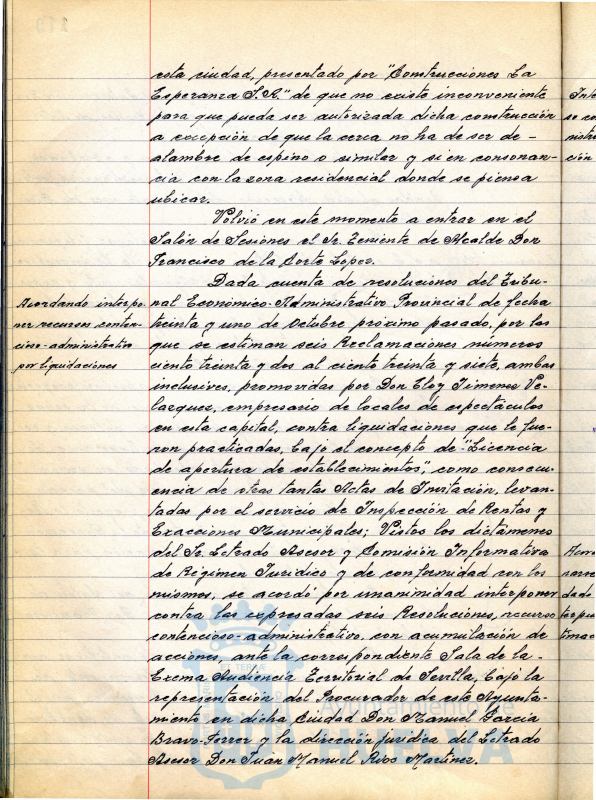 esta ciudad, presentado por "Construcciones La
Esperanza S.A." de que no existe inconveniente
para que pueda ser autorizada dicha construcción
a excepción de que la cerca no ha de ser de
alambre de espino o similar y si en consonan-
cia con la zona residencial donde se piensa
ubicar.
Volvió en este momento a entrar en el
Salón de Sesiones el Sr. Teniente de Alcalde Don
Francisco de la Corte Lopez.
Acordando interpo-
ner recursos conten-
cioso-administrativo
por liquidaciones
Dada cuenta de resoluciones del Tribu-
nal Económico-Administrativo Provincial de fecha
treinta y uno de Octubre próximo pasado, por las
que se estiman seis Reclamaciones números
ciento treinta y dos al ciento treinta y siete, ambas
inclusives, promovidas por Don Eloy Jimenez Ve-
lazquez, empresario de locales de espectáculos
en esta capital, contra liquidaciones que le fue-
ron practicadas, bajo el concepto de "Licencia
de apertura de establecimientos", como consecu-
encia de otras tantas Actas de Invitación, levan-
tadas por el servicio de Inspección de Rentas y
Exacciones Municipales; Vistos los dictámenes
del Sr. Letrado Asesor y Comisión Informativa
de Régimen Juridico y de conformidad con los
mismos, se acordó por unanimidad interponer
contra las expresadas seis Resoluciones, recurso
contencioso-administrativo, con acumulación de
acciones, ante la correspondiente Sala de la
Exema Audiencia Territorial de Sevilla, bajo la
representación del Procurador de este Ayunta-
miento en dicha Ciudad Don Manuel Garcia
Bravo-Ferrer y la dirección juridica del Letrado
Asesor Don Juan Manuel Rivos Martinez.
Ayuntamiento de
HUELVA